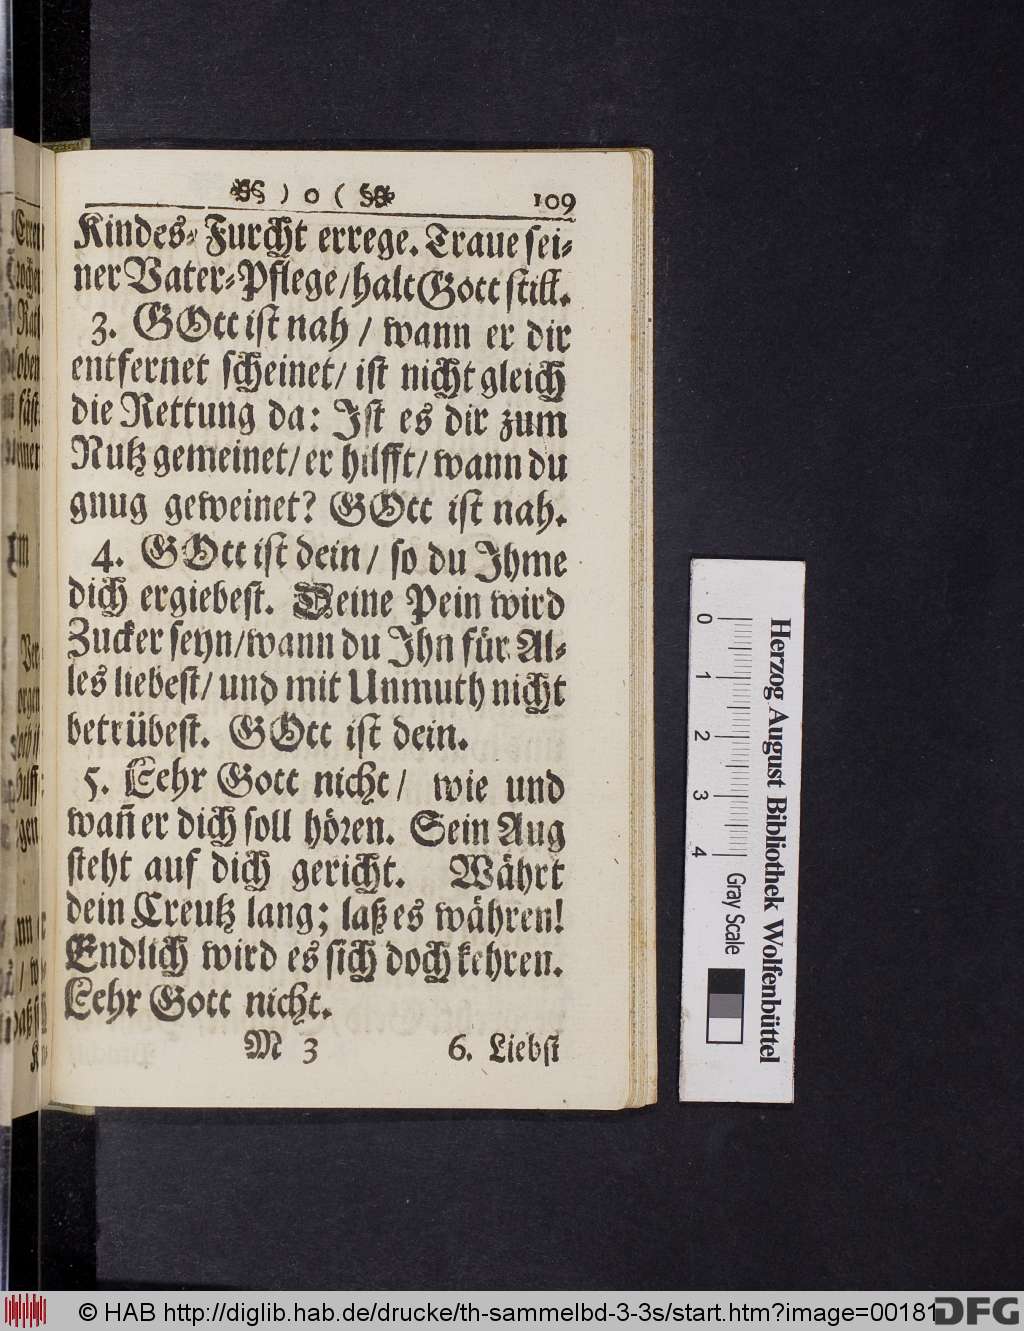 ) o ( 109
Kindes-Furcht errege. Traue sei-
ner Vater-Pflege/halt Gott still.
3. GOtt ist nah / wann er dir
entfernet scheinet/ ist nicht gleich
die Rettung da: Ist es dir zum
Nutz gemeinet/ er hilfft/ wann du
gnug geweinet? GOtt ist nah.
4. GOtt ist dein / so du Ihme
dich ergiebest. Deine Pein wird
Zucker seyn/wann du Ihn für Al-
les liebest/ und mit Unmuth nicht
betrübest. GOtt ist dein.
5. Lehr Gott nicht / wie und
wañ er dich soll hören. Sein Aug
steht auf dich gericht. Währt
dein Creutz lang; laß es währen!
Endlich wird es sich doch kehren.
Lehr Gott nicht.
M 3 6. Liebst
Herzog August Bibliothek Wolfenbüttel
0 1 2 3 4 Gray Scale
© HAB http://diglib.hab.de/drucke/th-sammelbd-3-3s/start.htm?image=00181
DFG